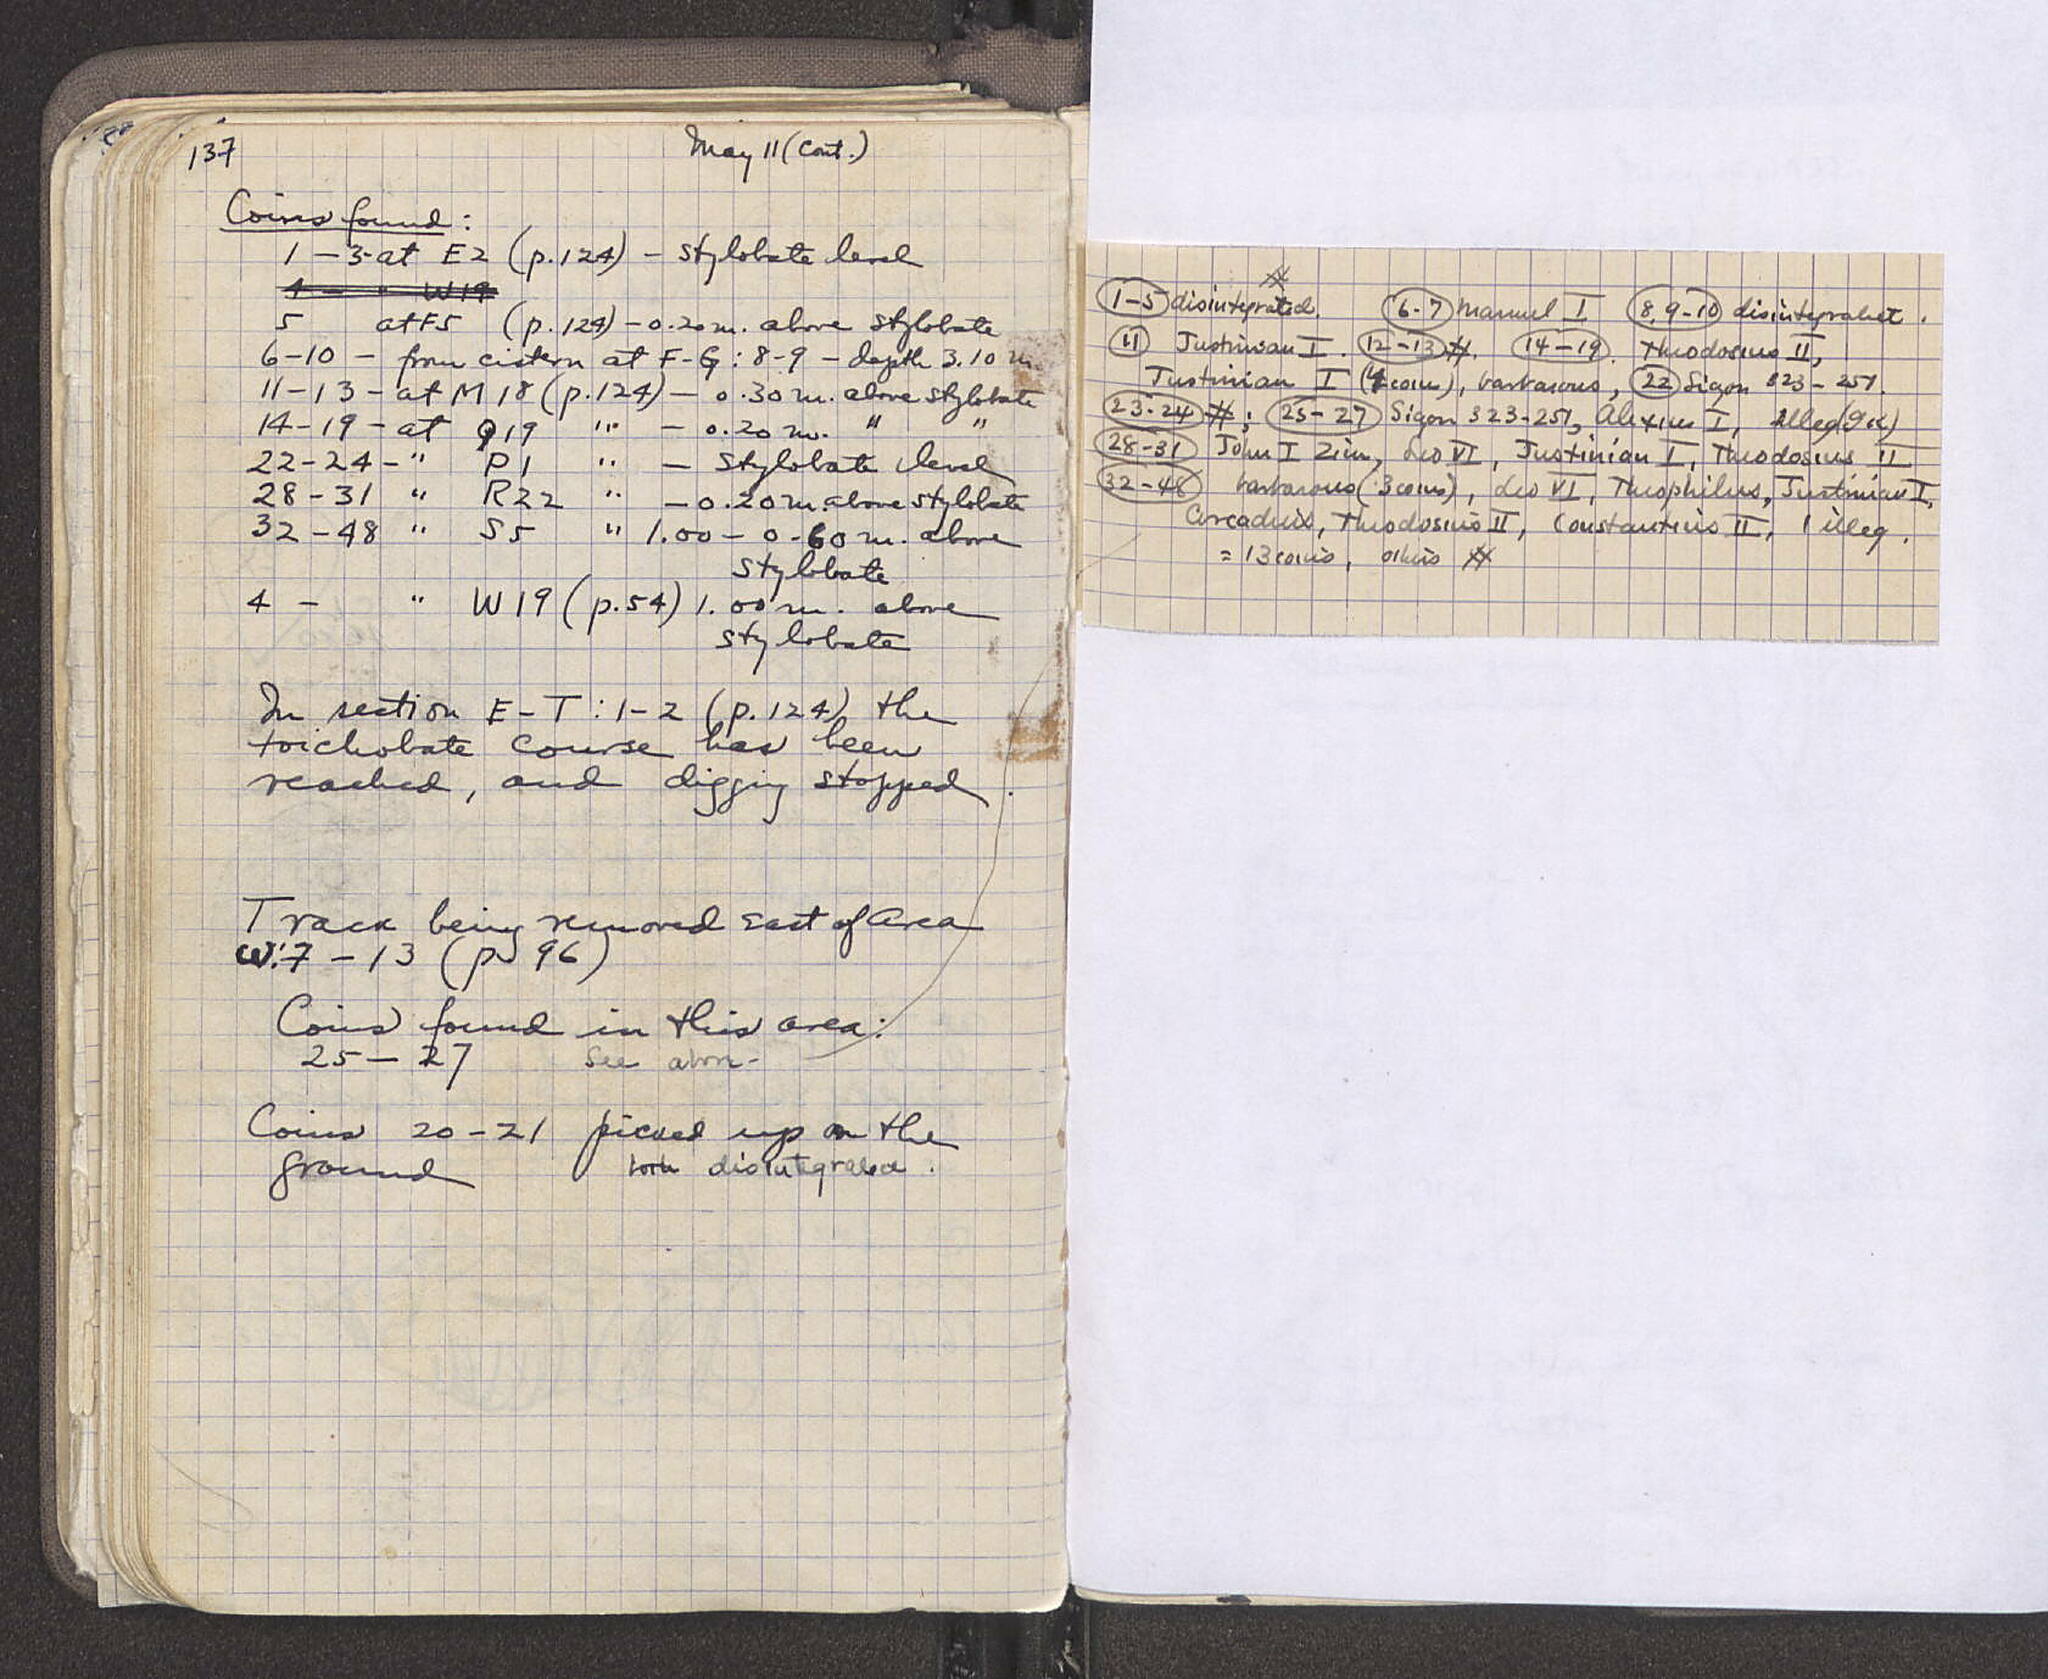 137
May 11 (cont.)
Coins found:
1 - 3 - at E2 (p.124) - stylobate level
4 - " W19
5 at F5 (p.124) - 0.20 m. above stylobate
6-10 - from cistern at F-G: 8-9 - depth 3.10 m
11-13 - at M18 (p.124) - 0.30 m. above stylobate
14-19 - at Q19 " - 0.20 m. " "
22-24 - " P1 " - stylobate level
28-31 " R22 " - 0.20 m. above stylobate
32-48 " S5 " 1.00 - 0.60 m. above
stylobate
4 - " W19 (p.54) 1.00 m. above
stylobate
In section E-T: 1-2 (p.124) the
toichobate course has been
reached, and digging stopped.
Track being removed East of Area
W:7-13 (p 96)
Coins found in this area:
25 - 27 See above -
Coins 20-21 picked up on the
ground both disintegrated.
1-5 disintegrated. 6-7 Manuel I 8, 9-10 disintegrated.
11 Justinian I. 12-13 #. 14-19. Theodosius II,
Justinian I (4 coins), barbarous, 22 Sigon 323-251.
23-24 #; 25-27 Sigon 323-251, Alexius I, illeg
28-31 John I Zim, Leo VI, Justinian I, Theodosius II
32-48 barbarous (3 coins), Leo VI, Theophilus, Justinian I,
Arcadius, Theodosius II, Constantius II, 1 illeg.
= 13 coins, others #